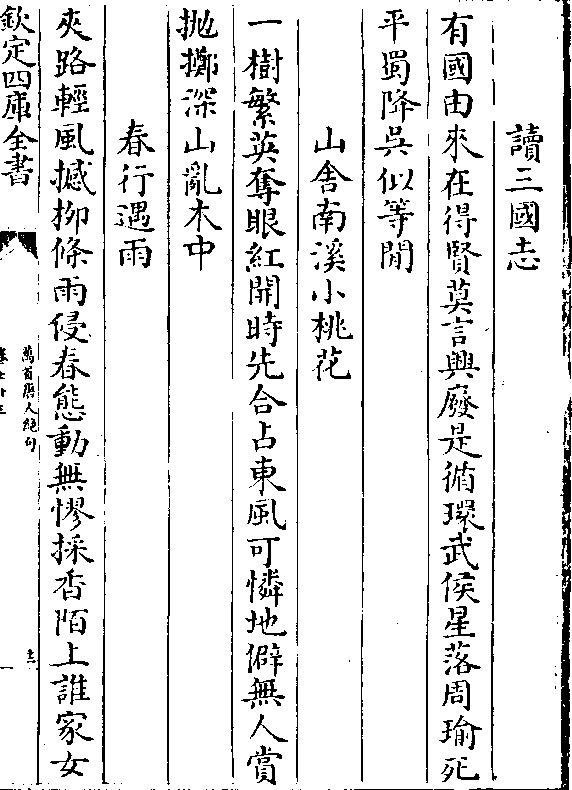 讀三國志
有國由來在得賢莫言興廢是循環武侯星落周瑜死
平蜀降吳似等閒
山舍南溪小桃花
一樹繁英奪眼紅開時先合占東風可憐地僻無人賞
抛擲深山亂木中
春行遇雨
夾路輕風撼栁條雨侵春態動無憀採香陌上誰家女
欽定四庫全書
萬首唐人絶句